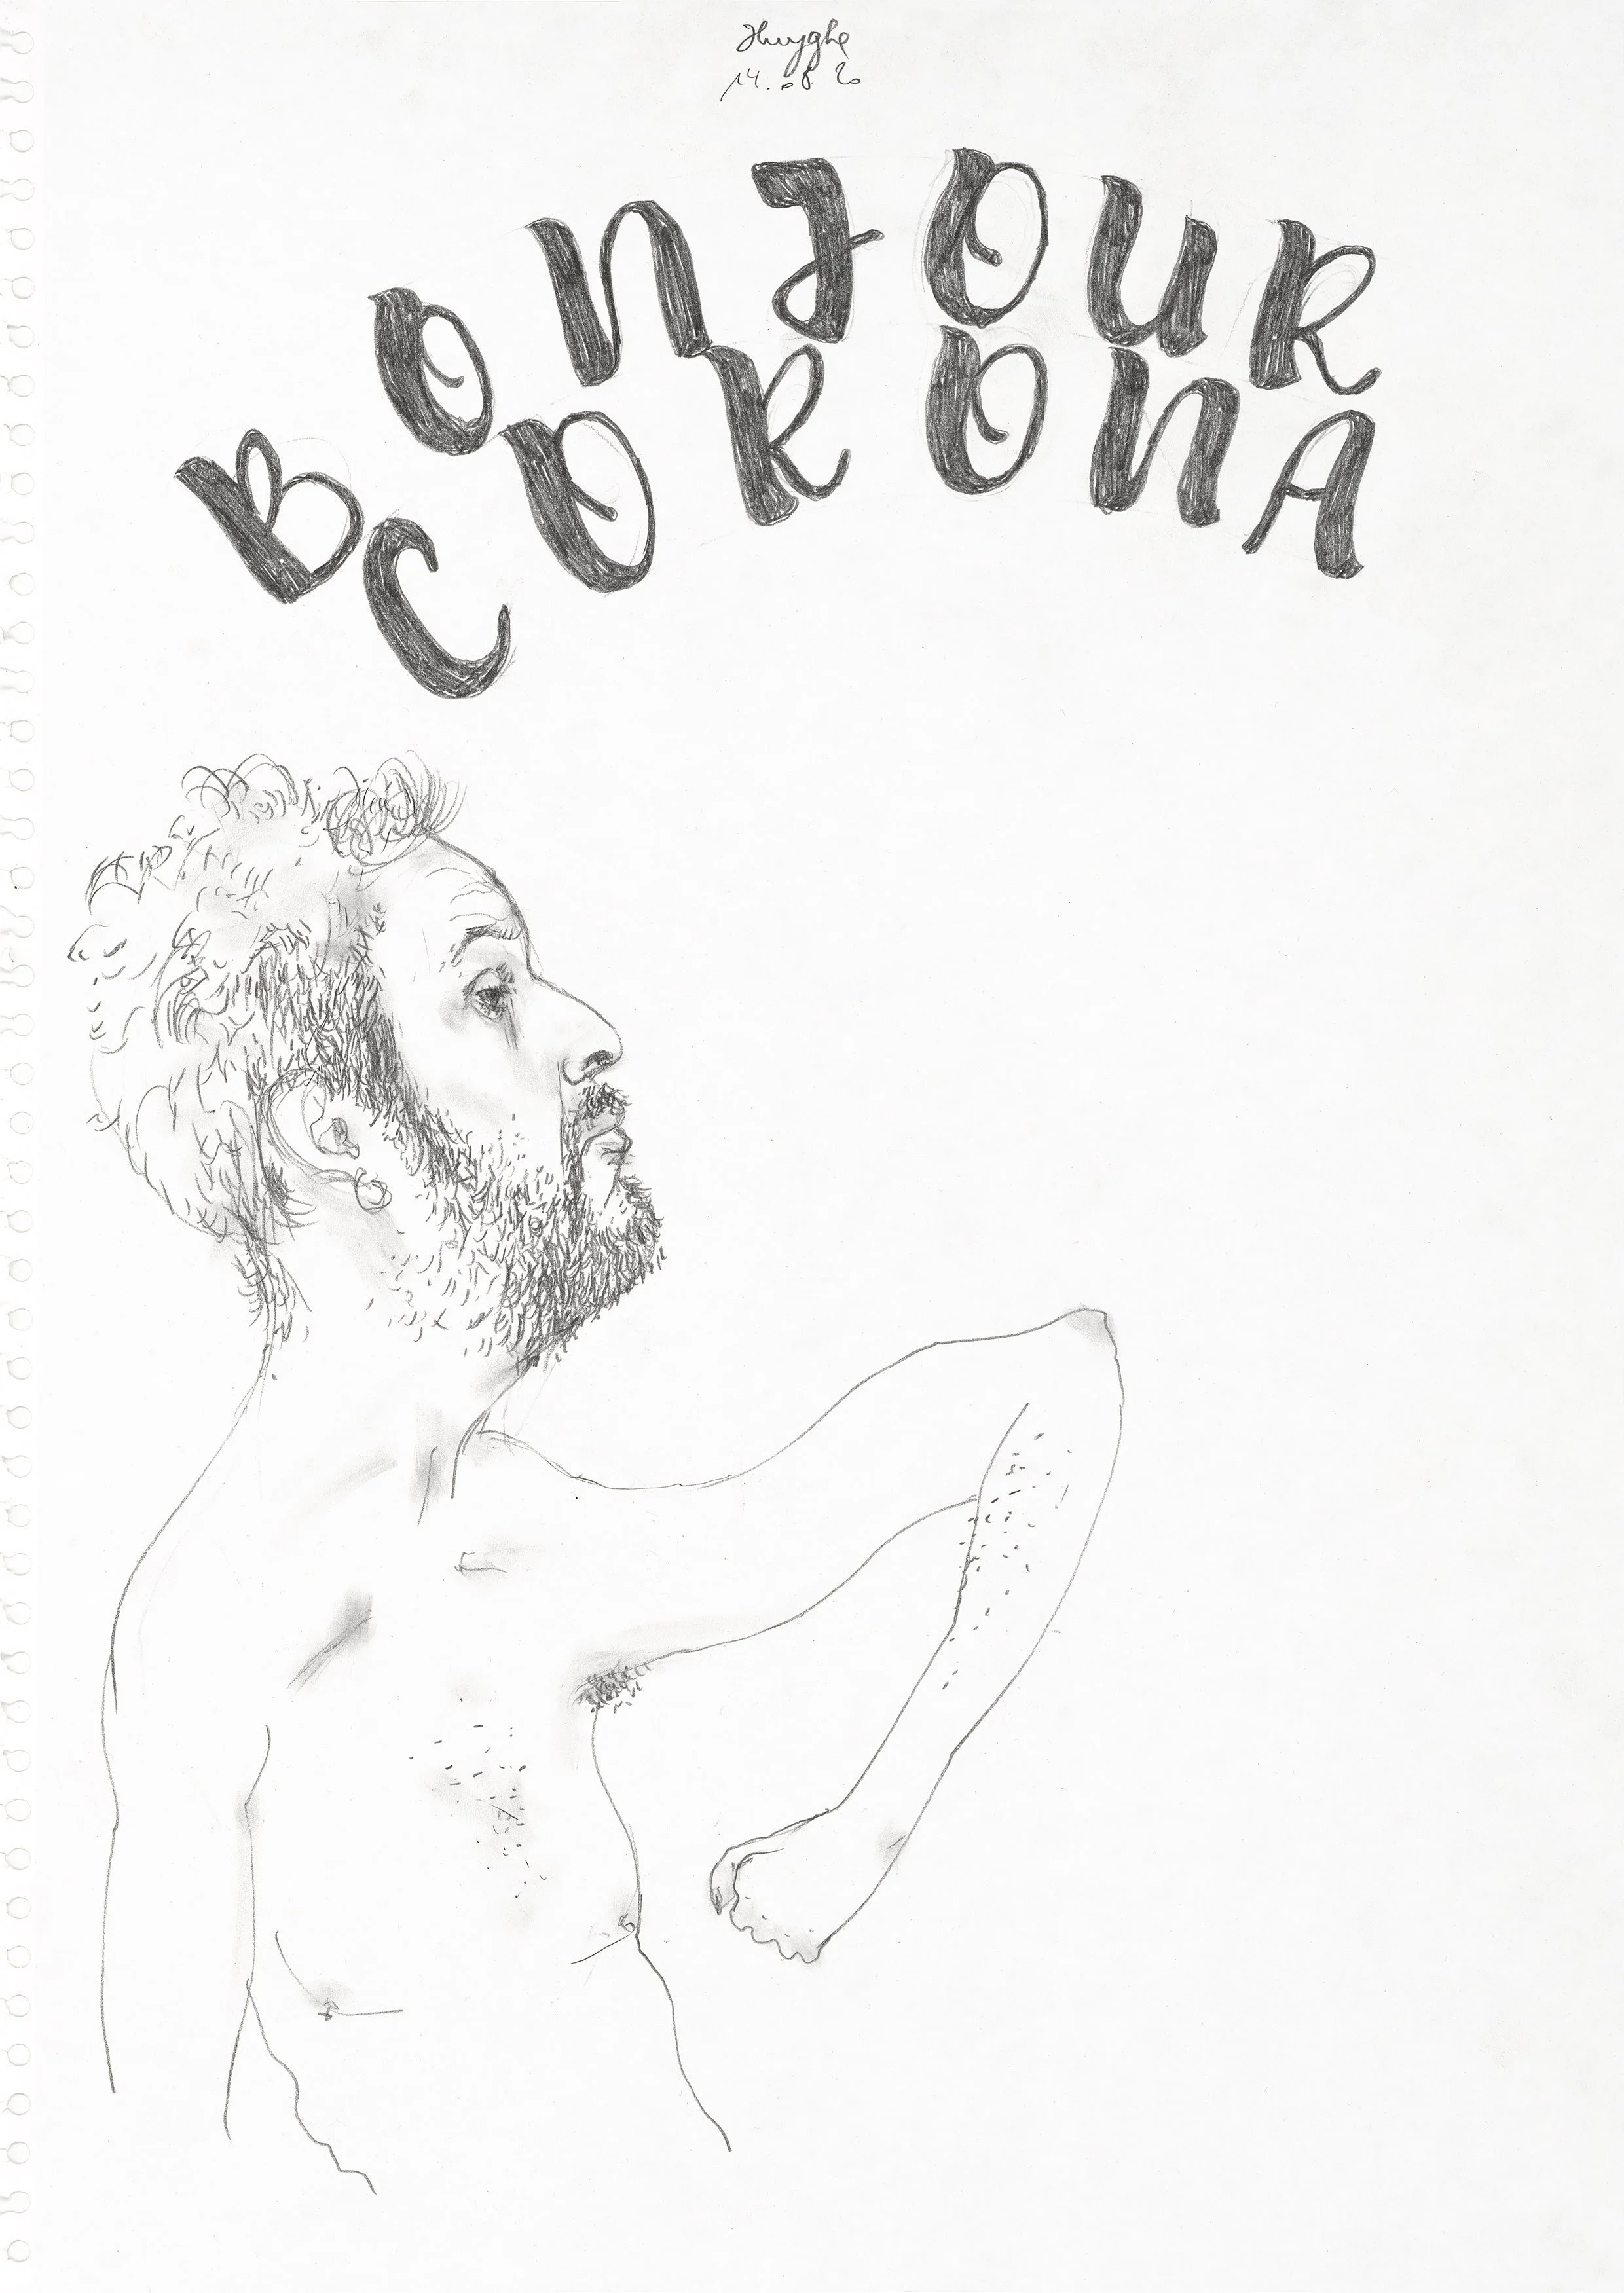 Huyghe
14.08.20
BONJOUR
CORONA